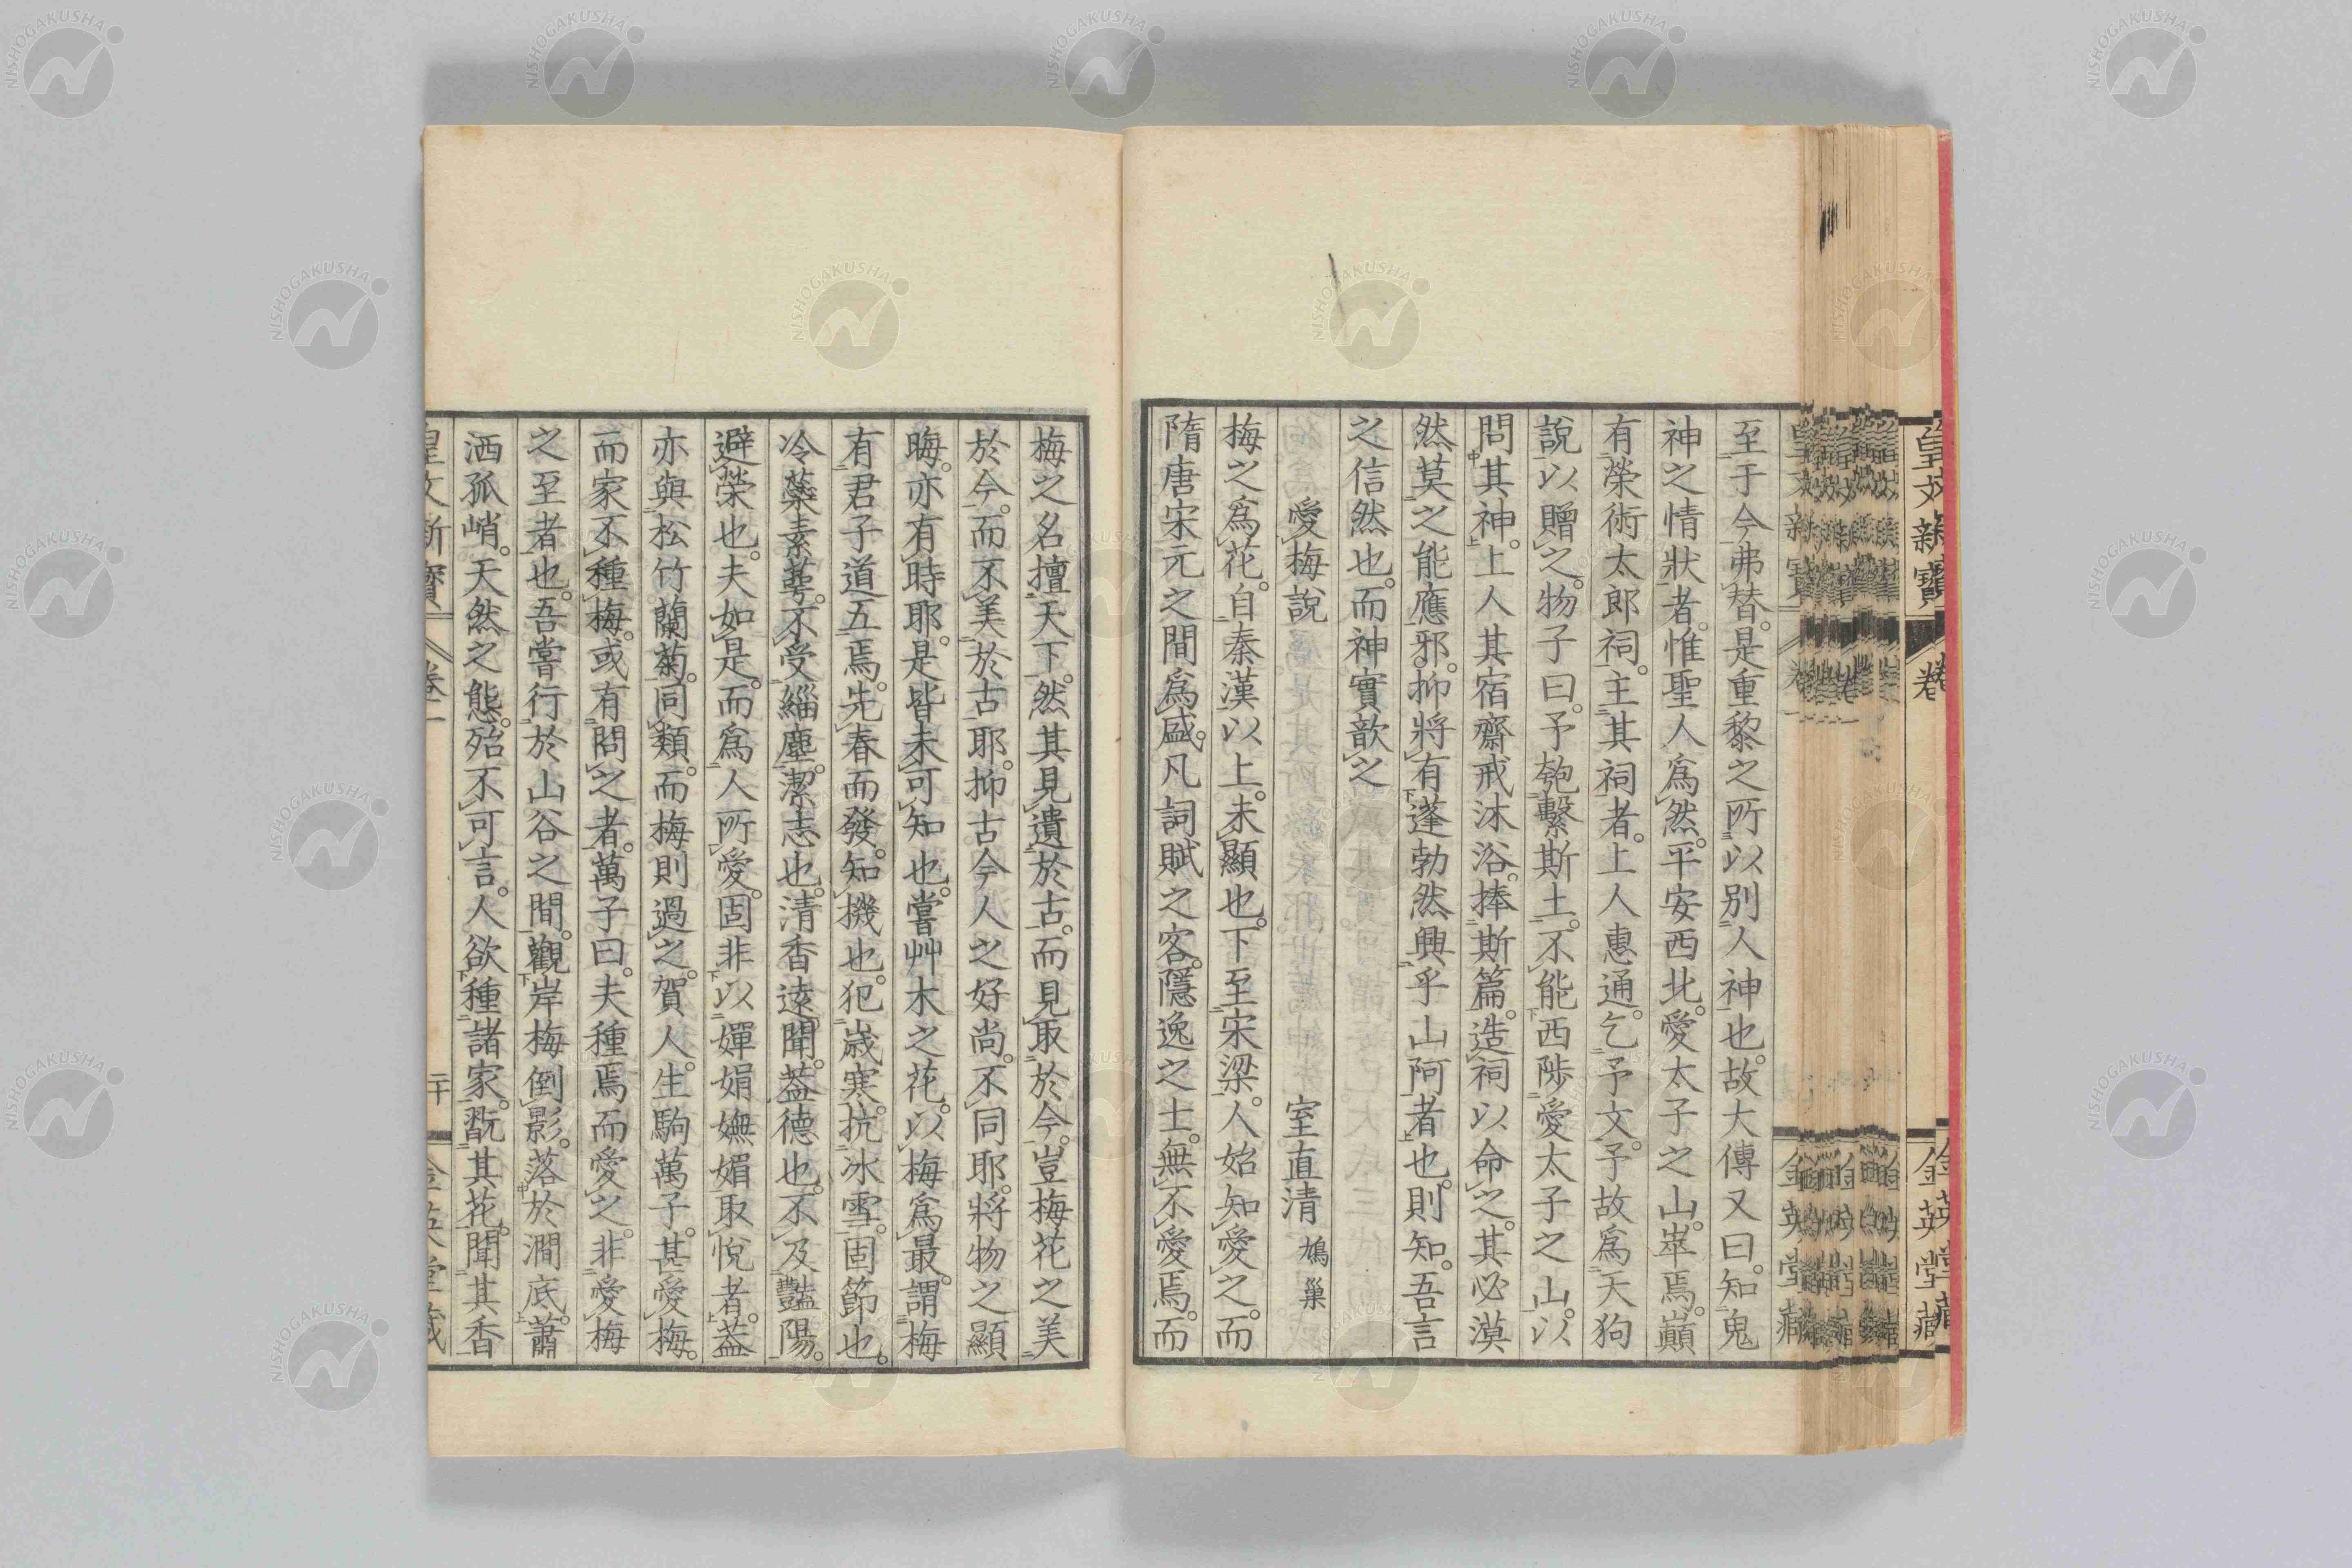 至于今弗替。是重黎之所以別人神也。故大傳又曰。知鬼
神之情狀者。惟聖人爲然。平安西北。愛太子之山。崒焉。巔
有榮術太郎祠。主其祠者。上人惠通。乞予文。予故爲天狗
説以贈之。物子曰。予匏繫斯土。不能西陟愛太子之山。以
問其神。上人其宿齋戒沐浴。捧斯篇。造祠以命之。其必漠
然莫之能應邪。抑將有蓬勃然興乎山阿者也。則知。吾言
之信然也。而神實歆之
愛梅説 室直清 鳩巢
梅之爲花。自秦漢以上。未顯也。下至宋梁。人始知愛之。而
隋唐宋元之間爲盛。凡詞賦之客。隱逸之士。無不愛焉。而
梅之名擅天下。然其見遺於古。而見取於今。豈梅花之美
於今。而不美於古耶。抑古今人之好尚。不同耶。將物之顯
晦。亦有時耶。是皆未可知也。嘗艸木之花。以梅爲最。謂梅
有君子道五焉。先春而發。知機也。犯歲寒。抗冰雪。固節也。
冷蘂素萼。不受緇塵。潔志也。清香遠聞。葢德也。不及豔陽。
避榮也。夫如是。而爲人所愛。固非以嬋娟嫵媚取悅者。葢
亦與松竹蘭菊。同類。而梅則過之。賀人。生駒萬子。甚愛梅。
而家不種梅。或有問之者。萬子曰。夫種焉而愛之。非愛梅
之至者也。吾嘗行於山谷之間。觀岸梅倒影。落於澗底。蕭
洒孤峭。天然之態。殆不可言。人欲種諸家。翫其花。聞其香
皇文新寶 卷一 二十 金英堂藏